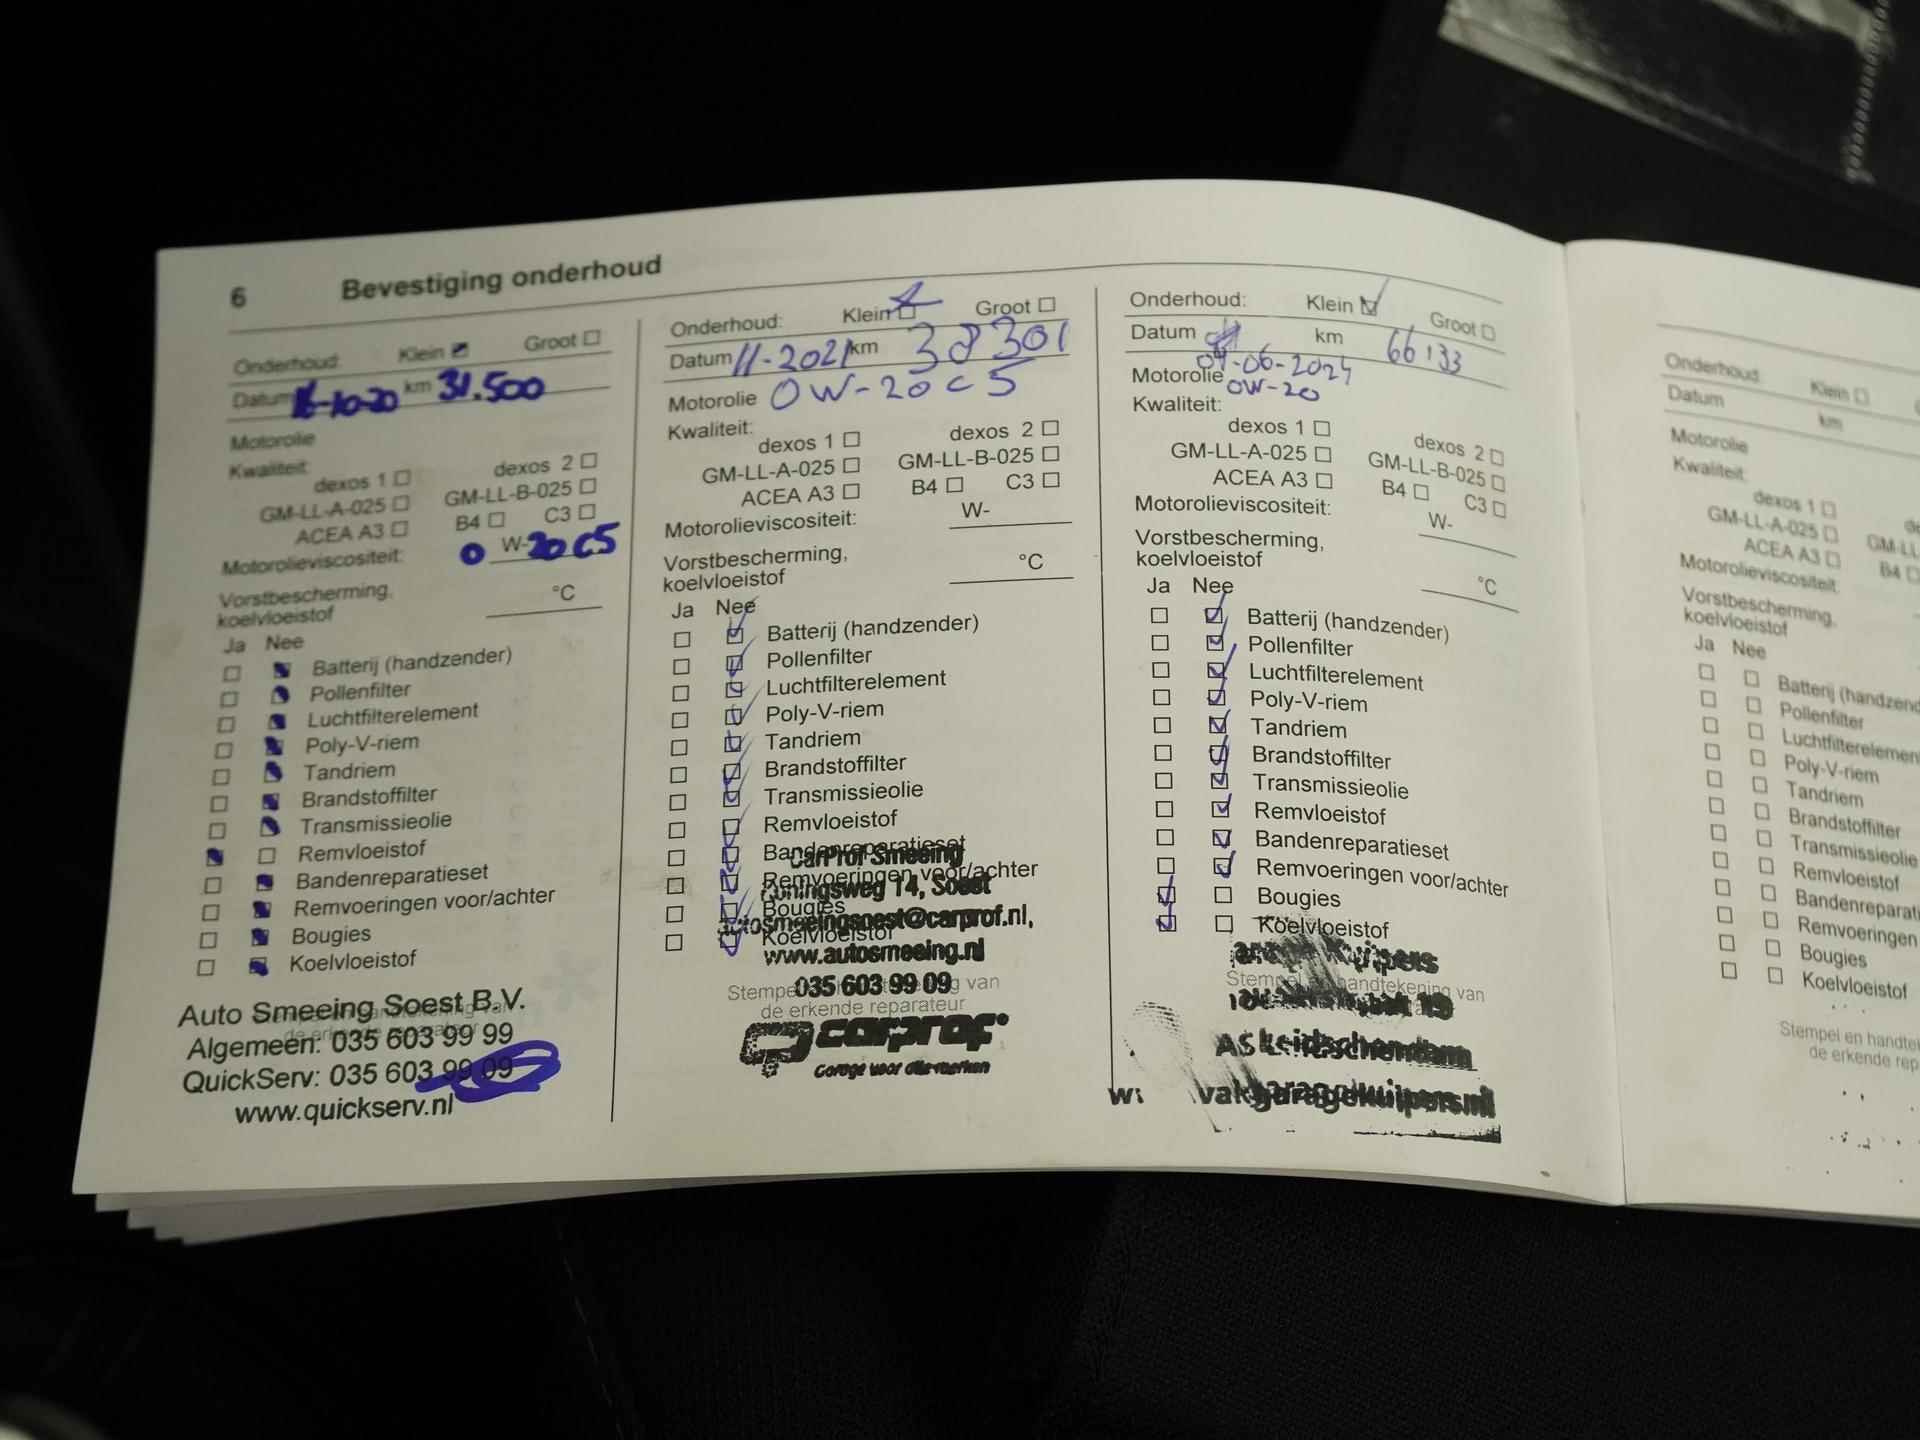 6 Bevestiging onderhoud
Onderhoud: Klein Groot
Datum 16-10-20 km 31.500
Motorolie
Kwaliteit:
dexos 1 dexos 2
GM-LL-A-025 GM-LL-B-025
ACEA A3 B4 C3
Motorolieviscositeit: 0 W-20 C5
Vorstbescherming,
koelvloeistof °C
Ja Nee
Batterij (handzender)
Pollenfilter
Luchtfilterelement
Poly-V-riem
Tandriem
Brandstoffilter
Transmissieolie
Remvloeistof
Bandenreparatieset
Remvoeringen voor/achter
Bougies
Koelvloeistof
Auto Smeeing Soest B.V.
Algemeen: 035 603 99 99
QuickServ: 035 603 99 09
www.quickserv.nl
Onderhoud: Klein Groot
Datum 11-2021 km 38301
Motorolie 0W-20 C5
Kwaliteit:
dexos 1 dexos 2
GM-LL-A-025 GM-LL-B-025
ACEA A3 B4 C3
Motorolieviscositeit: W-
Vorstbescherming,
koelvloeistof °C
Ja Nee
Batterij (handzender)
Pollenfilter
Luchtfilterelement
Poly-V-riem
Tandriem
Brandstoffilter
Transmissieolie
Remvloeistof
Bandenreparatieset
CarProf Smeeing
Remvoeringen voor/achter
Koningsweg 14, Soest
Bougies
autosmeeingsoest@carprof.nl,
Koelvloeistof
www.autosmeeing.nl
035 603 99 09
Stempel van
de erkende reparateur
carprof
Garage voor alle merken
Onderhoud: Klein Groot
Datum km 66133
04-06-2024
Motorolie 0W-20
Kwaliteit:
dexos 1 dexos 2
GM-LL-A-025 GM-LL-B-025
ACEA A3 B4 C3
Motorolieviscositeit: W-
Vorstbescherming,
koelvloeistof °C
Ja Nee
Batterij (handzender)
Pollenfilter
Luchtfilterelement
Poly-V-riem
Tandriem
Brandstoffilter
Transmissieolie
Remvloeistof
Bandenreparatieset
Remvoeringen voor/achter
Bougies
Koelvloeistof
Kuijpers
Stempel handtekening van
19
Leidschendam
vakgaragekuijpers.nl
Onderhoud: Klein
Datum km
Motorolie
Kwaliteit:
dexos 1
GM-LL-A-025
ACEA A3 B4
Motorolieviscositeit:
Vorstbescherming,
koelvloeistof
Ja Nee
Batterij (handzend
Pollenfilter
Luchtfilterelement
Poly-V-riem
Tandriem
Brandstoffilter
Transmissieolie
Remvloeistof
Bandenreparati
Remvoeringen
Bougies
Koelvloeistof
Stempel en handte
de erkende rep